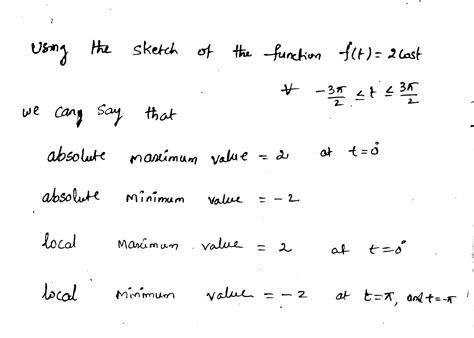 Using the sketch of the function f(t) = 2 cost
∀ -3π/2 ≤ t ≤ 3π/2
we can say that
absolute maximum value = 2 at t=0°
absolute minimum value = -2.
local maximum value = 2 at t=0°
local minimum value = -2 at t=π, and t=-π